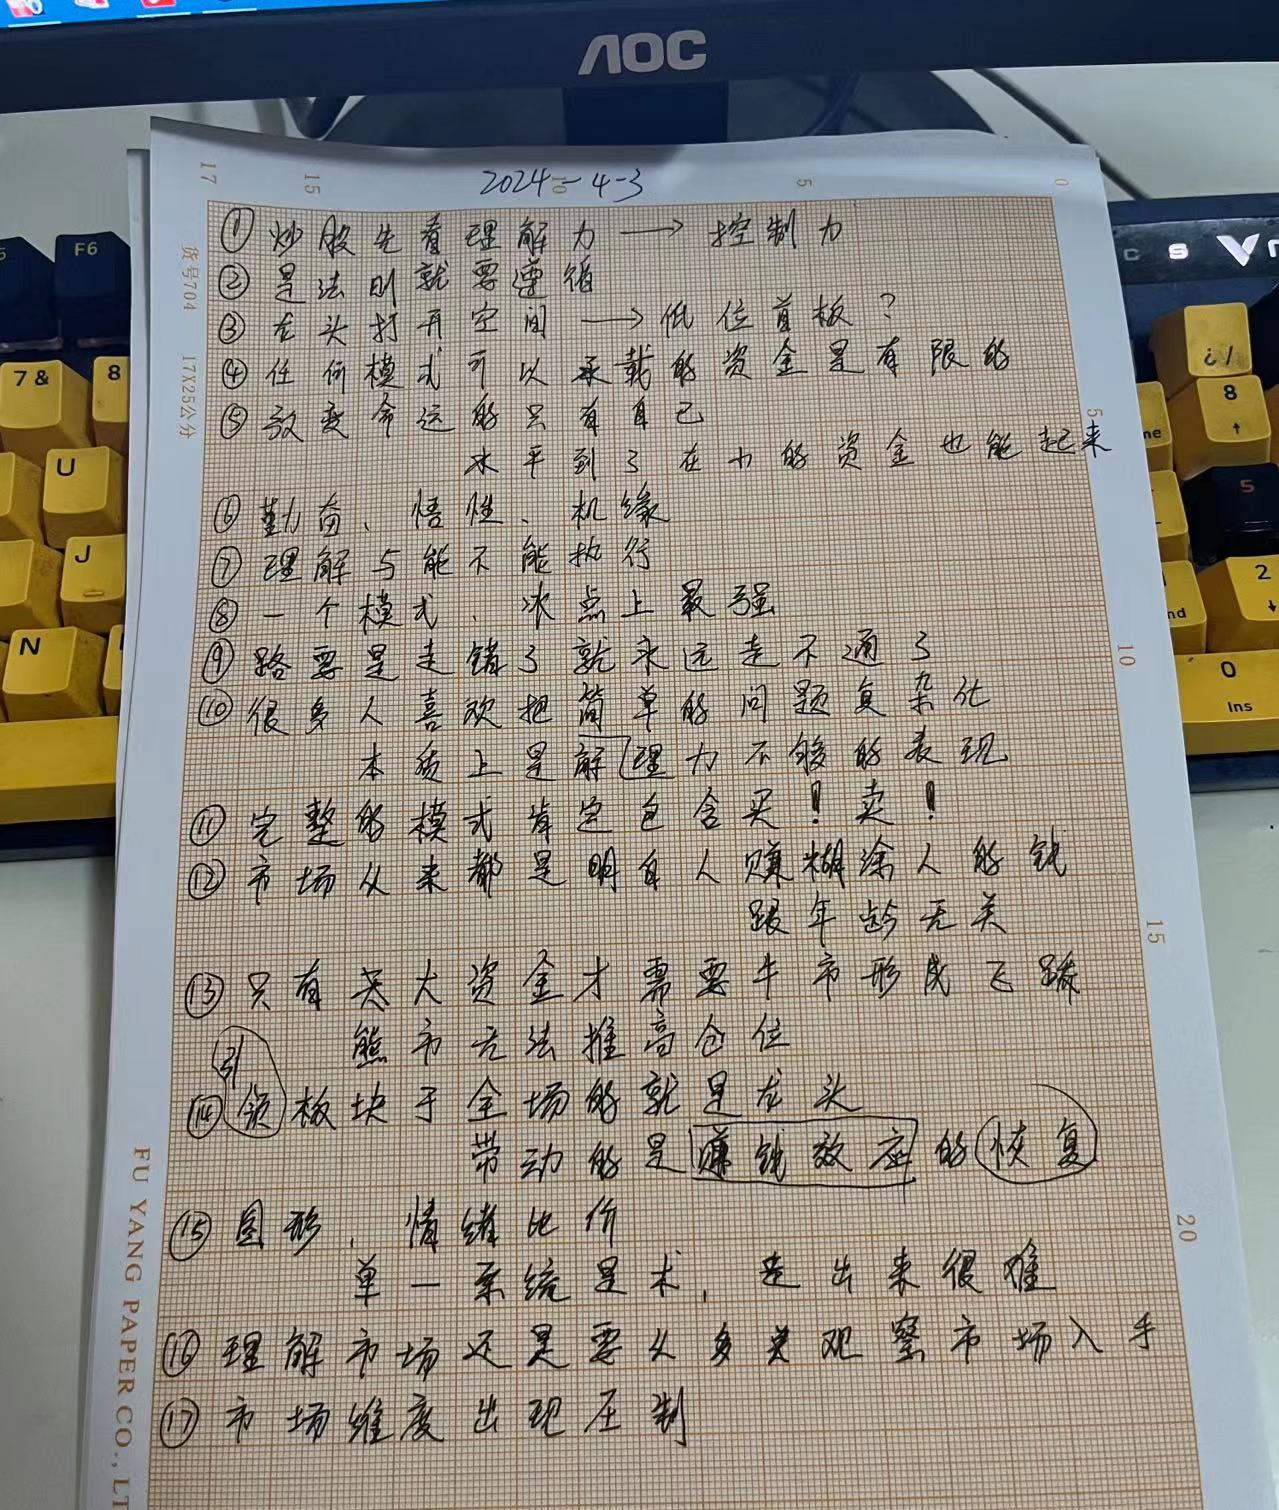 AOC
2024-4-3
17
15
10
5
0
货号704
17X25公分
① 炒股先看理解力 → 控制力
② 是法则就要遵循
③ 龙头打开空间 → 低位首板?
④ 任何模式可以承载的资金是有限的
⑤ 改变命运的只有自己
水平到了在小的资金也能起来
⑥ 勤奋、悟性、机缘
⑦ 理解与能不能执行
⑧ 一个模式、冰点上最强
⑨ 路要是走错了就永远走不通了
⑩ 很多人喜欢把简单的问题复杂化
本质上是解理力不够的表现
⑪ 完整的模式肯定包含买!卖!
⑫ 市场从来都是明白人赚糊涂人的钱
跟年龄无关
⑬ 只有大资金才需要牛市形成飞跃
熊市无法推高仓位
引
⑭ 领板块于全场的就是龙头
带动的是赚钱效应的恢复
⑮ 图形、情绪比价
单一系统是术,走出来很难
⑯ 理解市场还是要从多观察市场入手
⑰ 市场维度出现压制
5
10
15
20
FU YANG PAPER CO., LT
F6
7 &
8
U
J
N
¿ /
8
5
2
nd
0
Ins